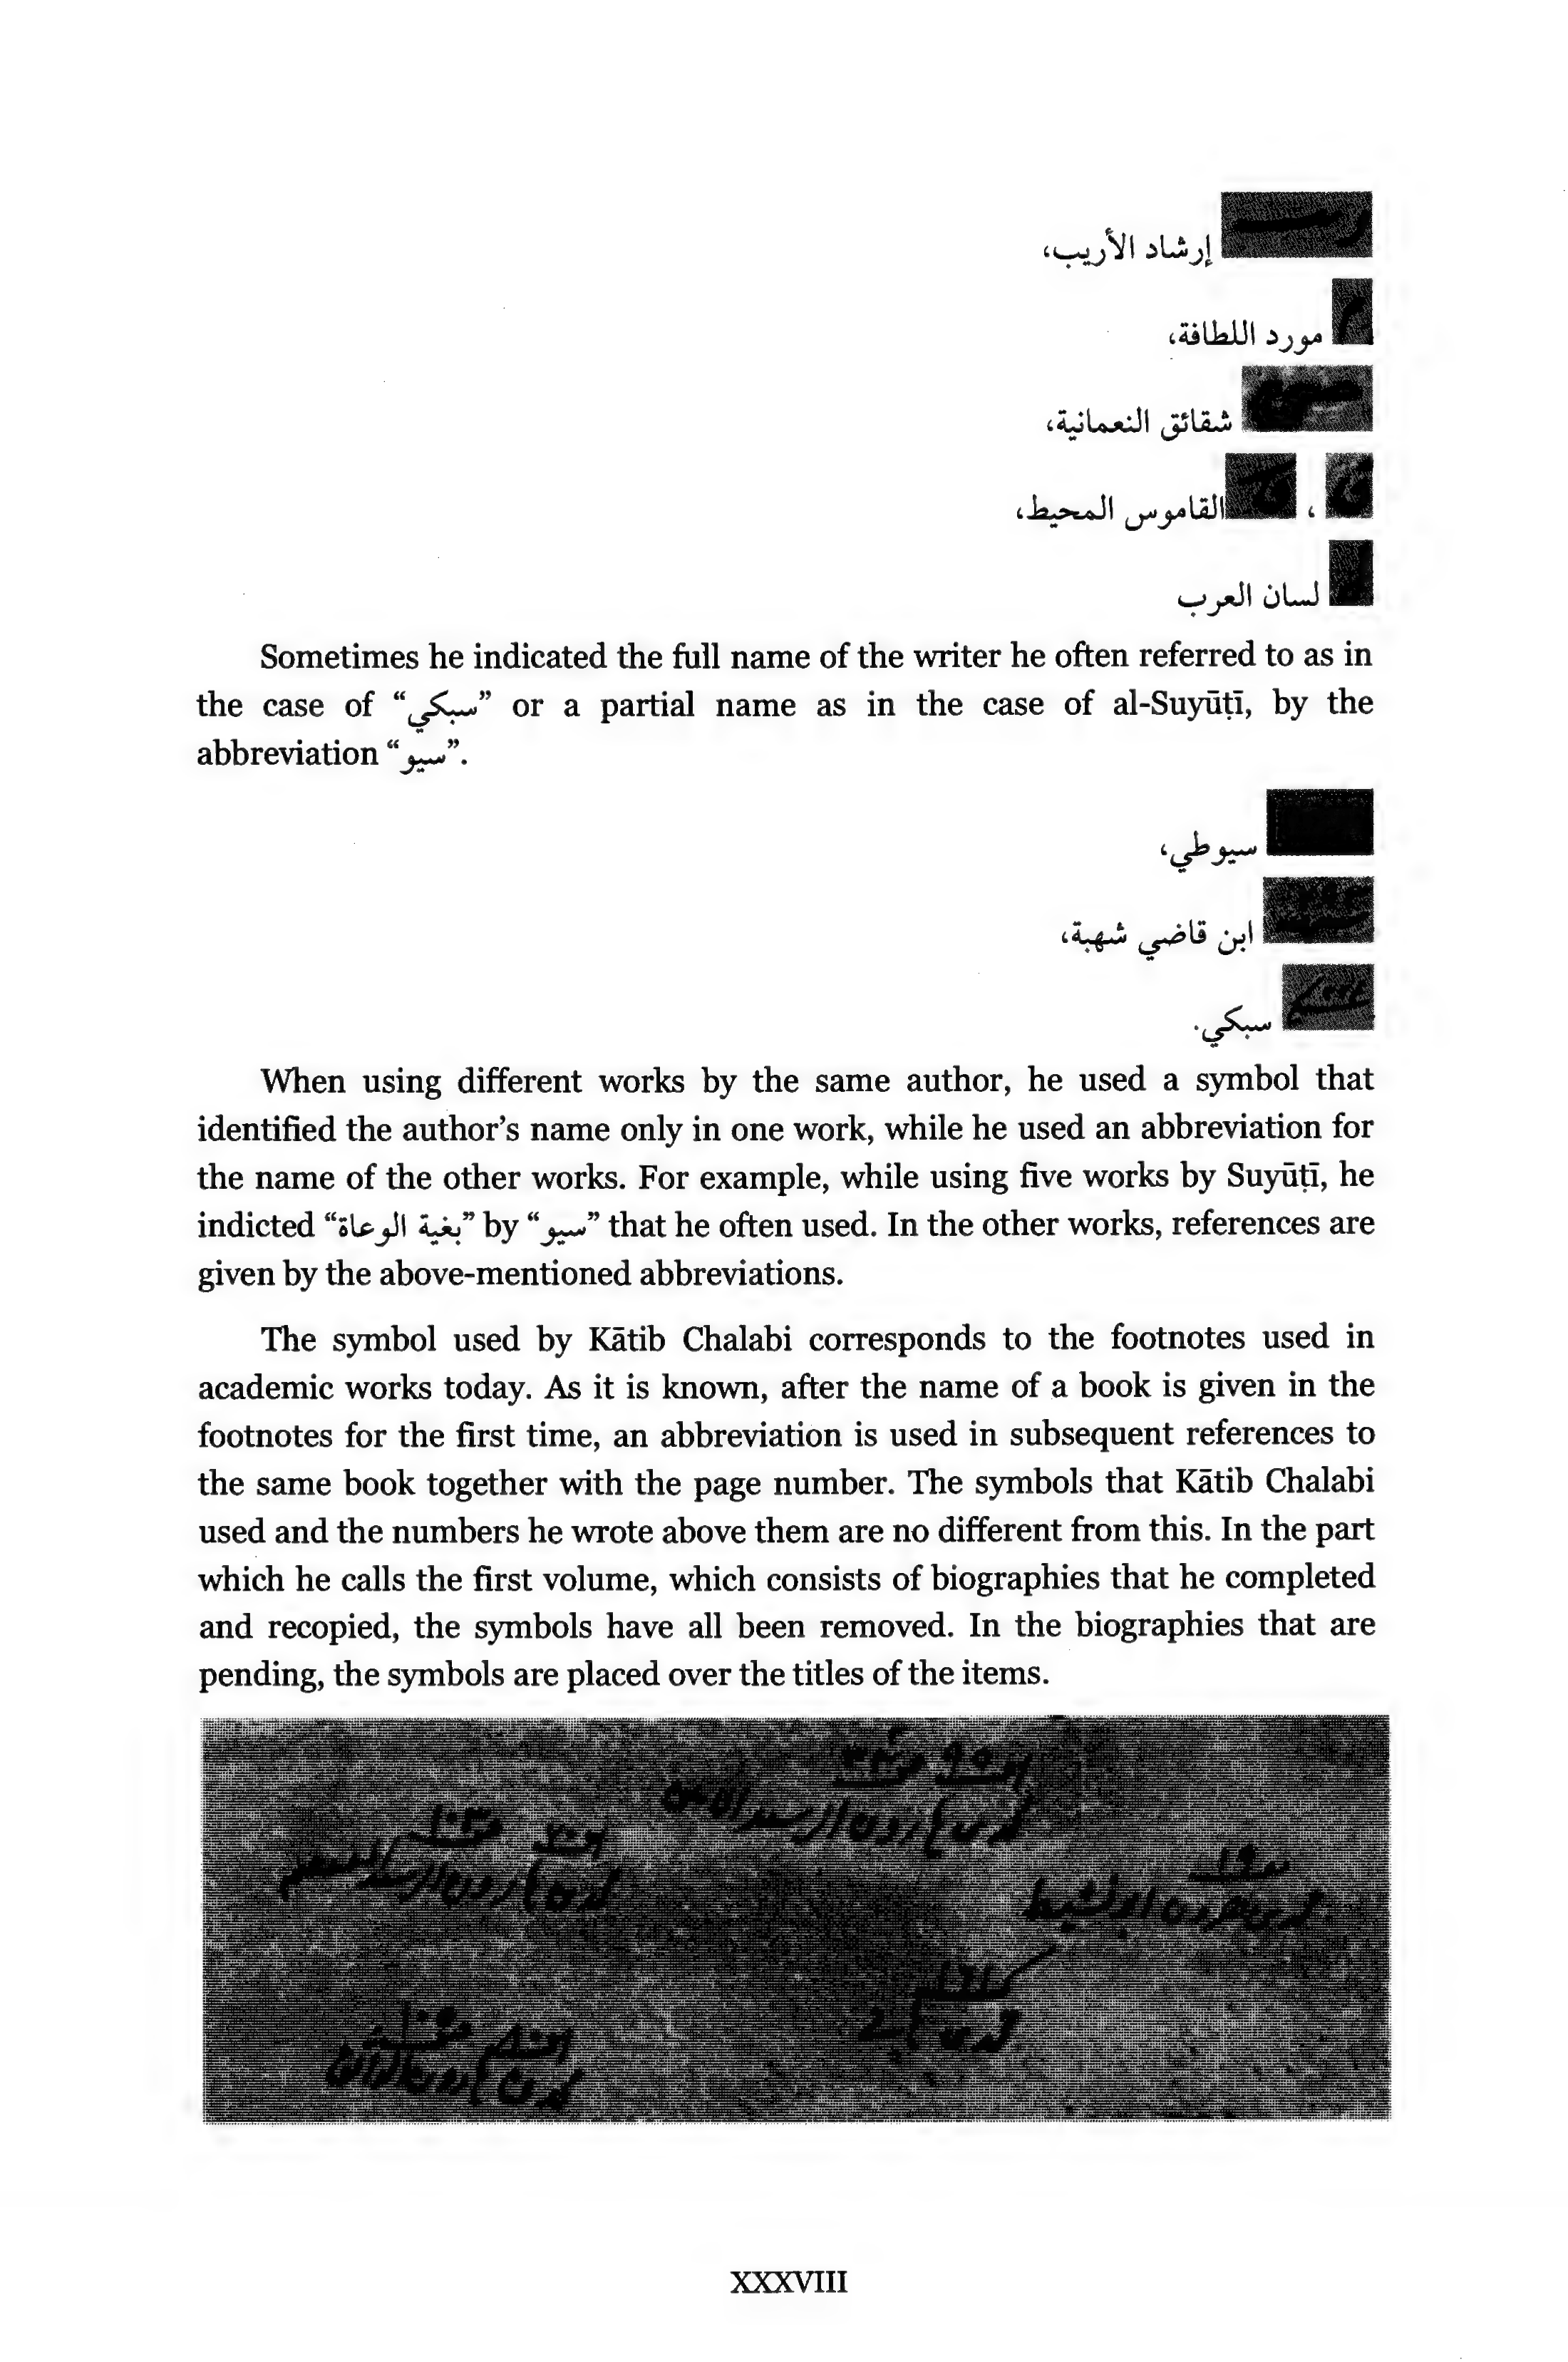 إرشاد الأريب،
مورد اللطافة،
شقائق النعمانية،
، القاموس المحيط،
لسان العرب
Sometimes he indicated the full name of the writer he often referred to as in
the case of “سبكي” or a partial name as in the case of al-Suyūṭī, by the
abbreviation “سيو”.
سيوطي،
ابن قاضي شهبة،
سبكي.
When using different works by the same author, he used a symbol that
identified the author’s name only in one work, while he used an abbreviation for
the name of the other works. For example, while using five works by Suyūṭī, he
indicted “بغية الوعاة” by “سيو” that he often used. In the other works, references are
given by the above-mentioned abbreviations.
The symbol used by Kātib Chalabi corresponds to the footnotes used in
academic works today. As it is known, after the name of a book is given in the
footnotes for the first time, an abbreviation is used in subsequent references to
the same book together with the page number. The symbols that Kātib Chalabi
used and the numbers he wrote above them are no different from this. In the part
which he calls the first volume, which consists of biographies that he completed
and recopied, the symbols have all been removed. In the biographies that are
pending, the symbols are placed over the titles of the items.
XXXVIII